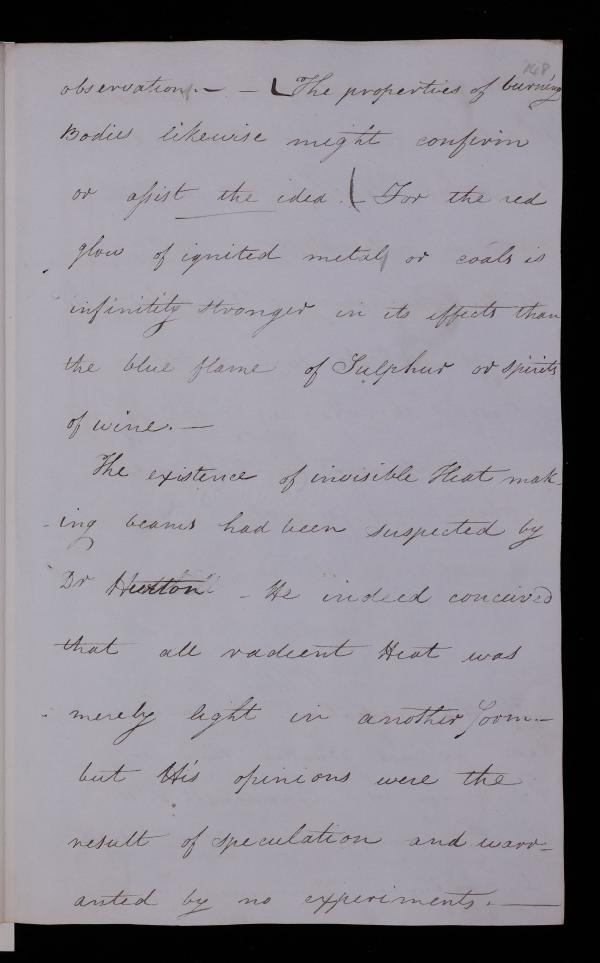 148
observations. — — The properties of burning
Bodies likewise might confirm
or assist the idea. — For the red
glow of ignited metals or coals is
infinitely stronger in its effects than
the blue flame of Sulphur or spirits
of wine. —
The existence of invisible Heat mak-
-ing beams had been suspected by
Dr Hutton — He indeed conceived
that all radient Heat was
merely light in another form. —
but His opinions were the
result of speculation and warr-
anted by no experiments. —